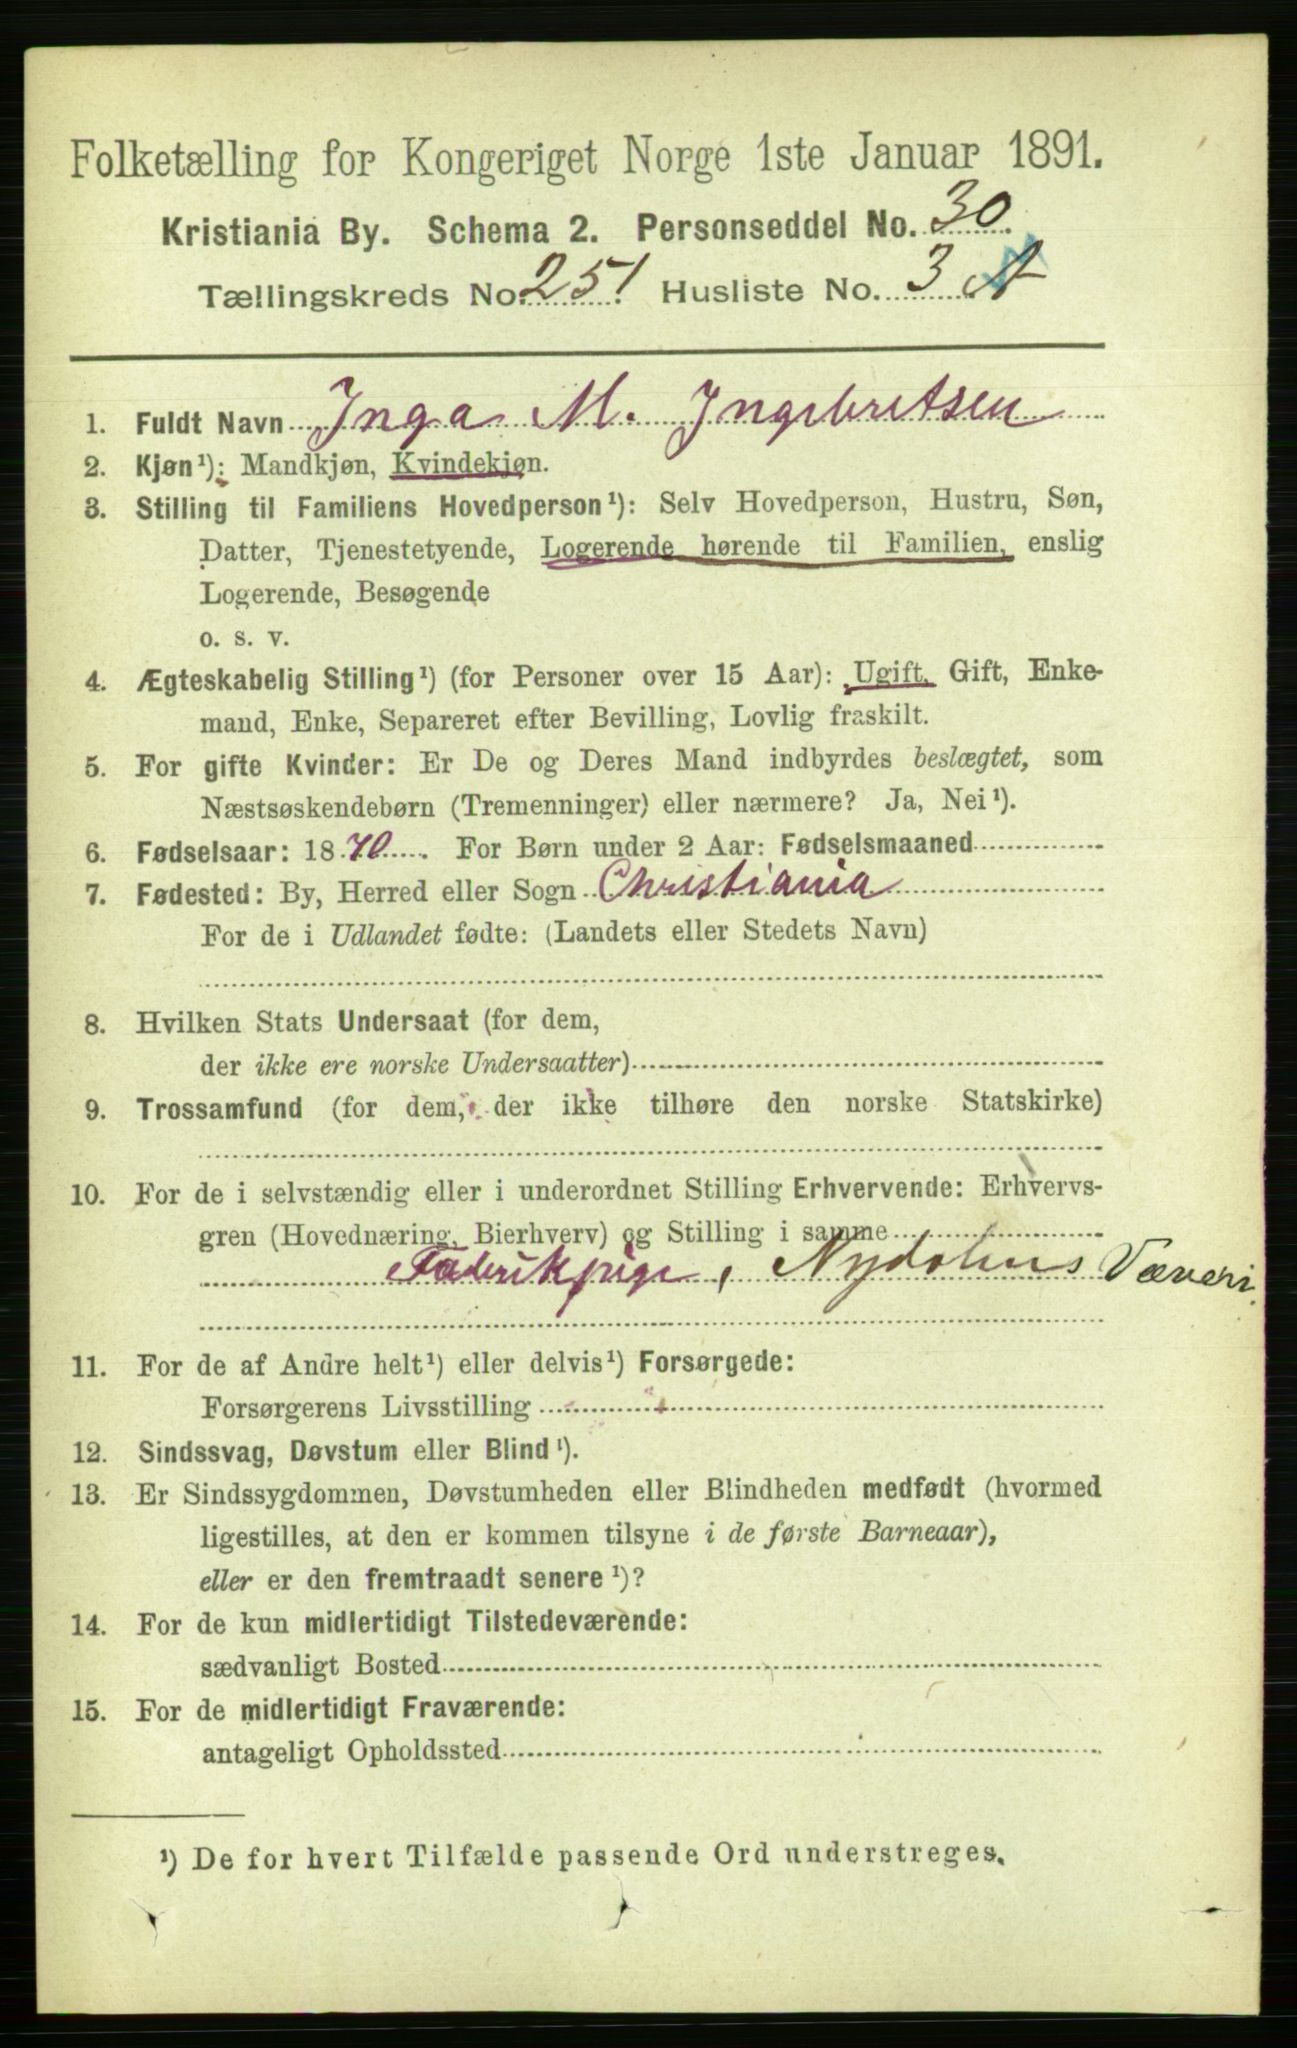 Folketælling for Kongeriget Norge 1ste Januar 1891.
Kristiania By. Schema 2. Personseddel No. 30.
Tællingskreds No. 251 Husliste No. 3 A
1. Fuldt Navn Inga M. Ingebretsen
2. Kjøn¹): Mandkjøn, Kvindekjøn.
3. Stilling til Familiens Hovedperson¹): Selv Hovedperson, Hustru, Søn,
Datter, Tjenestetyende, Logerende hørende til Familien, enslig
Logerende, Besøgende
o. s. v.
4. Ægteskabelig Stilling¹) (for Personer over 15 Aar): Ugift, Gift, Enke-
mand, Enke, Separeret efter Bevilling, Lovlig fraskilt.
5. For gifte Kvinder: Er De og Deres Mand indbyrdes beslægtet, som
Næstsøskendebørn (Tremenninger) eller nærmere? Ja, Nei¹).
6. Fødselsaar: 1870. For Børn under 2 Aar: Fødselsmaaned
7. Fødested: By, Herred eller Sogn Christiania
For de i Udlandet fødte: (Landets eller Stedets Navn)
8. Hvilken Stats Undersaat (for dem,
der ikke ere norske Undersaatter)
9. Trossamfund (for dem, der ikke tilhøre den norske Statskirke)
10. For de i selvstændig eller i underordnet Stilling Erhvervende: Erhvervs-
gren (Hovednæring, Bierhverv) og Stilling i samme
Fabrikpige, Nydalens Væveri.
11. For de af Andre helt¹) eller delvis¹) Forsørgede:
Forsørgerens Livsstilling
12. Sindssvag, Døvstum eller Blind¹).
13. Er Sindssygdommen, Døvstumheden eller Blindheden medfødt (hvormed
ligestilles, at den er kommen tilsyne i de første Barneaar),
eller er den fremtraadt senere¹)?
14. For de kun midlertidigt Tilstedeværende:
sædvanligt Bosted
15. For de midlertidigt Fraværende:
antageligt Opholdssted
¹) De for hvert Tilfælde passende Ord understreges.